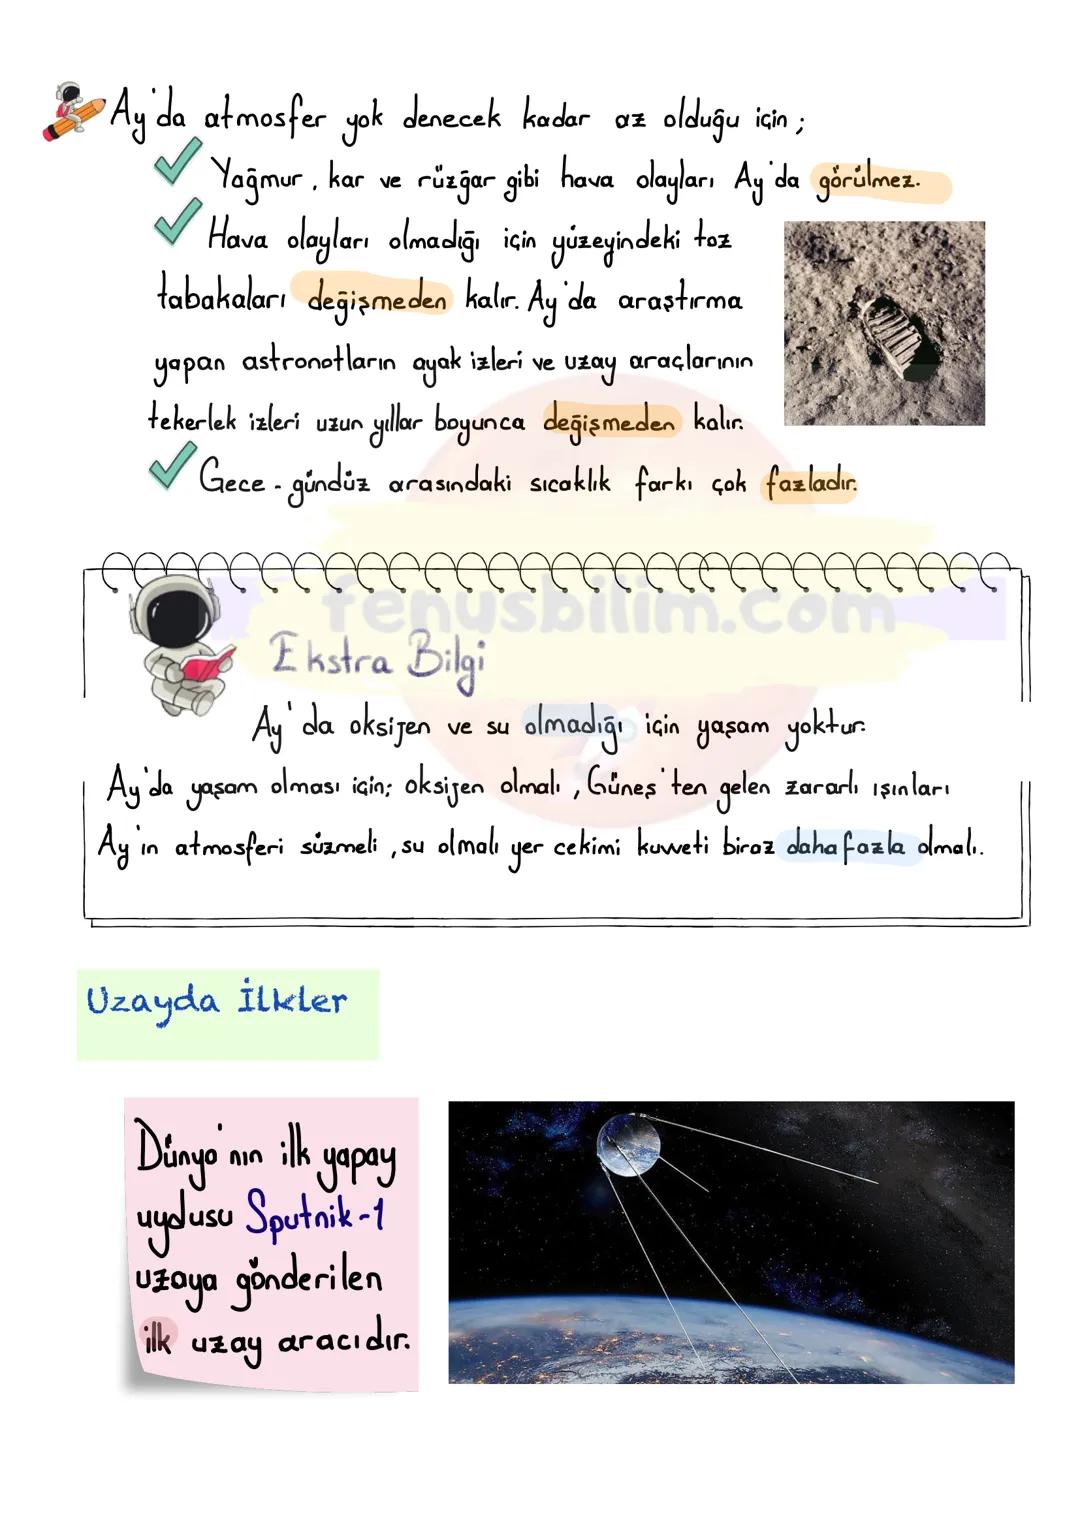 Ay'da atmosfer yok denecek kadar az olduğu için ;
Yağmur, kar ve rüzğar gibi hava olayları Ay'da görülmez.
Hava olayları olmadığı için yüzeyindeki toz
tabakaları değişmeden kalır. Ay'da araştırma
yapan astronotların ayak izleri ve uzay araçlarının
tekerlek izleri uzun yıllar boyunca değişmeden kalır.
Gece - gündüz arasındaki sıcaklık farkı çok fazladır.
fenusbilim.com
Ekstra Bilgi
Ay'da oksijen ve su olmadığı için yaşam yoktur.
Ay'da yaşam olması için; oksijen olmalı , Güneş'ten gelen zararlı ışınları
Ay'ın atmosferi süzmeli , su olmalı yer cekimi kuvveti biraz daha fazla olmalı.
Uzayda İlkler
Dünya'nın ilk yapay
uydusu Sputnik-1
uzaya gönderilen
ilk uzay aracıdır.